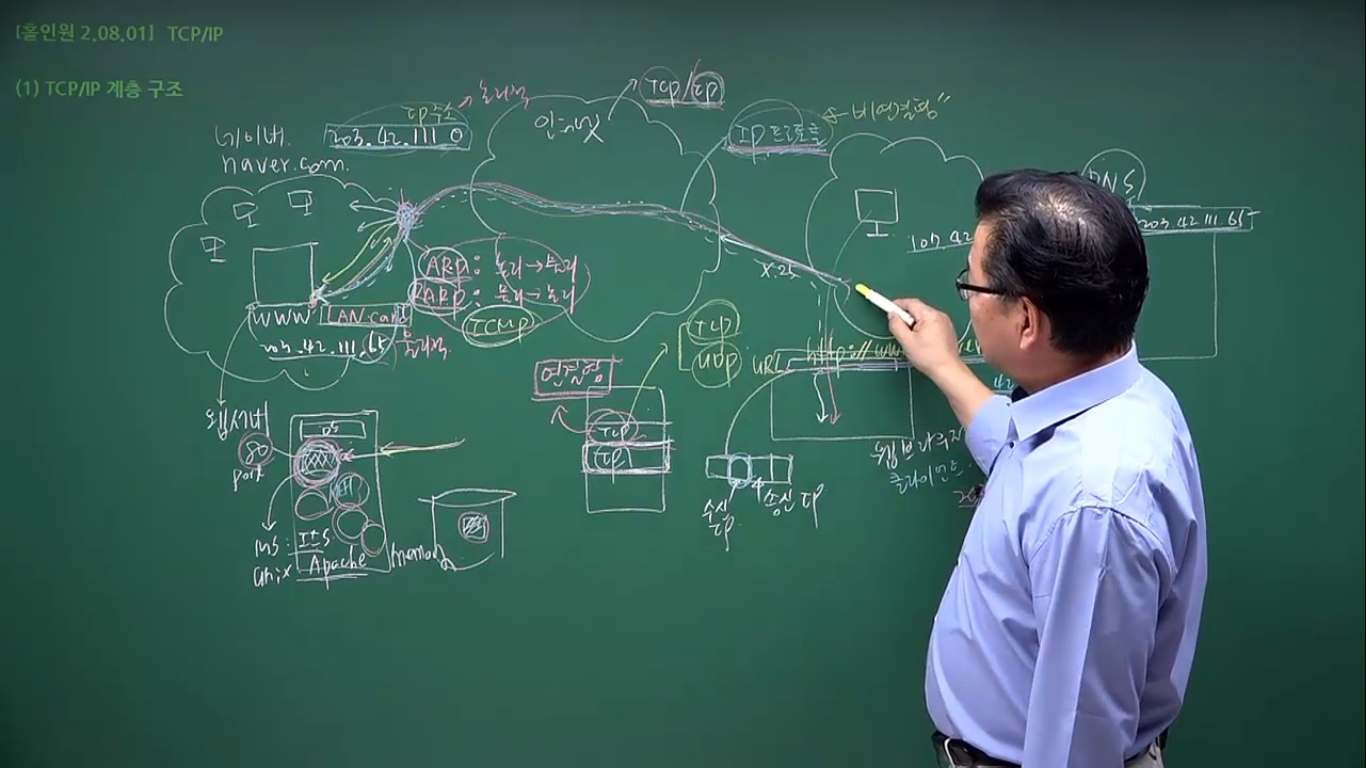 [홀인원 2.08.01] TCP/IP
(1) TCP/IP 계층 구조
TCP/IP
IP주소 → 논리적
인터넷
IP프로토콜
비연결형
네이버
203.42.111.0
naver.com
DNS
203.42.111.65
ARP : 논리→물리
RARP : 물리→논리
X.25
WWW
LAN card
ICMP
TCP
UDP
203.42.111.65
물리적
URL
http://ww
연결형
웹서버
80
port
TCP
IP
수신
IP
송신 IP
클라이언트
MS : IIS
Unix Apache
memory